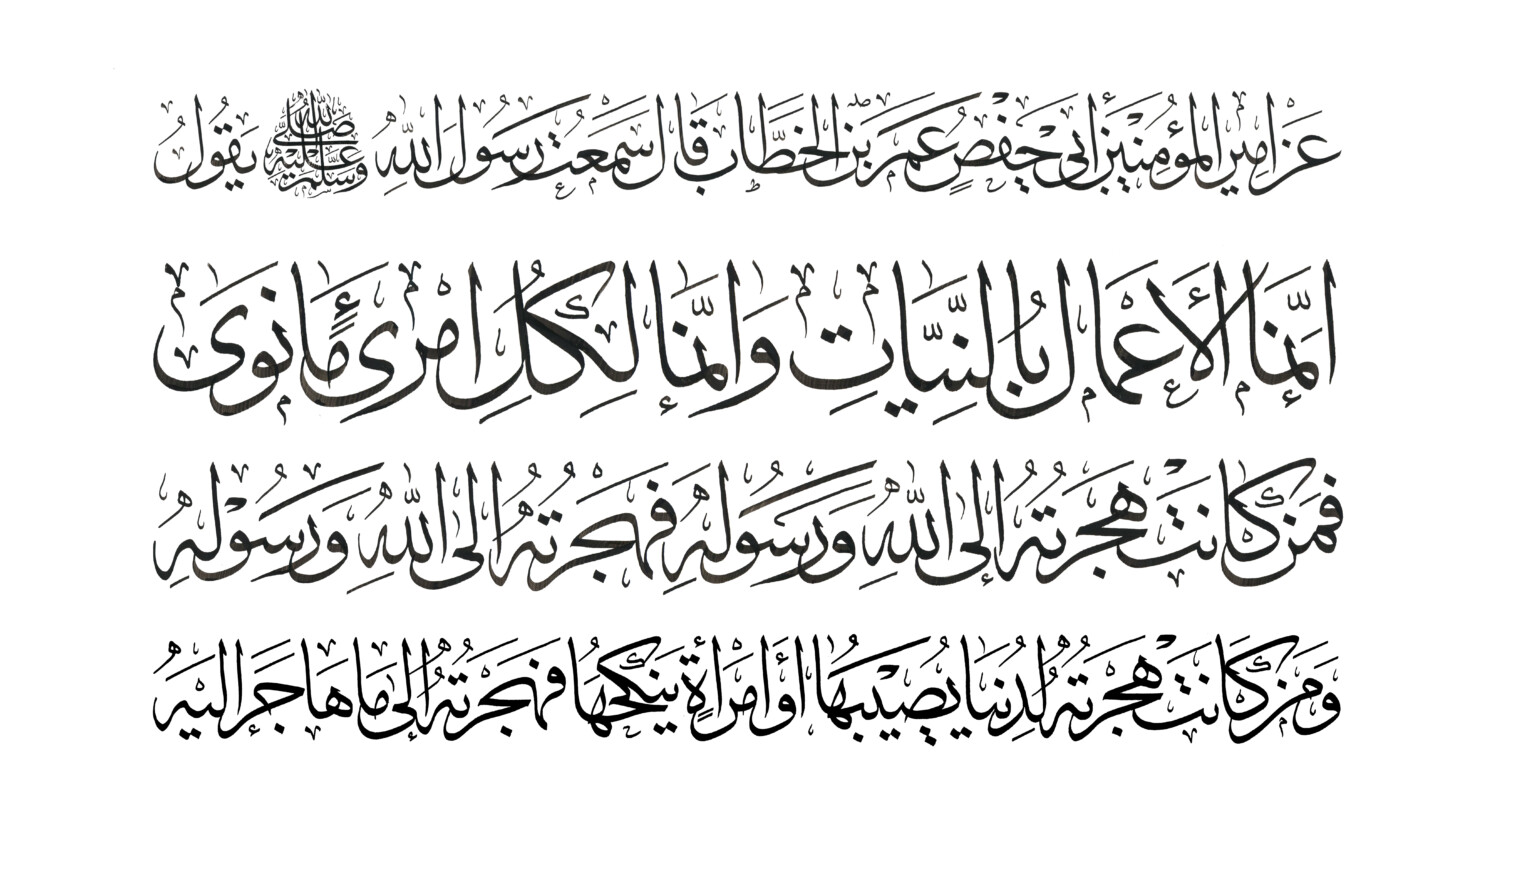 عن امير المؤمنين ابى حفص عمر بن الخطاب قال سمعت رسول الله صلى الله عليه وسلم يقول
انما الأعمال بالنيات وإنما لكل امرئ ما نوى
فمن كانت هجرته إلى الله ورسوله فهجرته الى الله ورسوله
ومن كانت هجرته لدنيا يصيبها أو امرأة ينكحها فهجرته إلى ما هاجر إليه